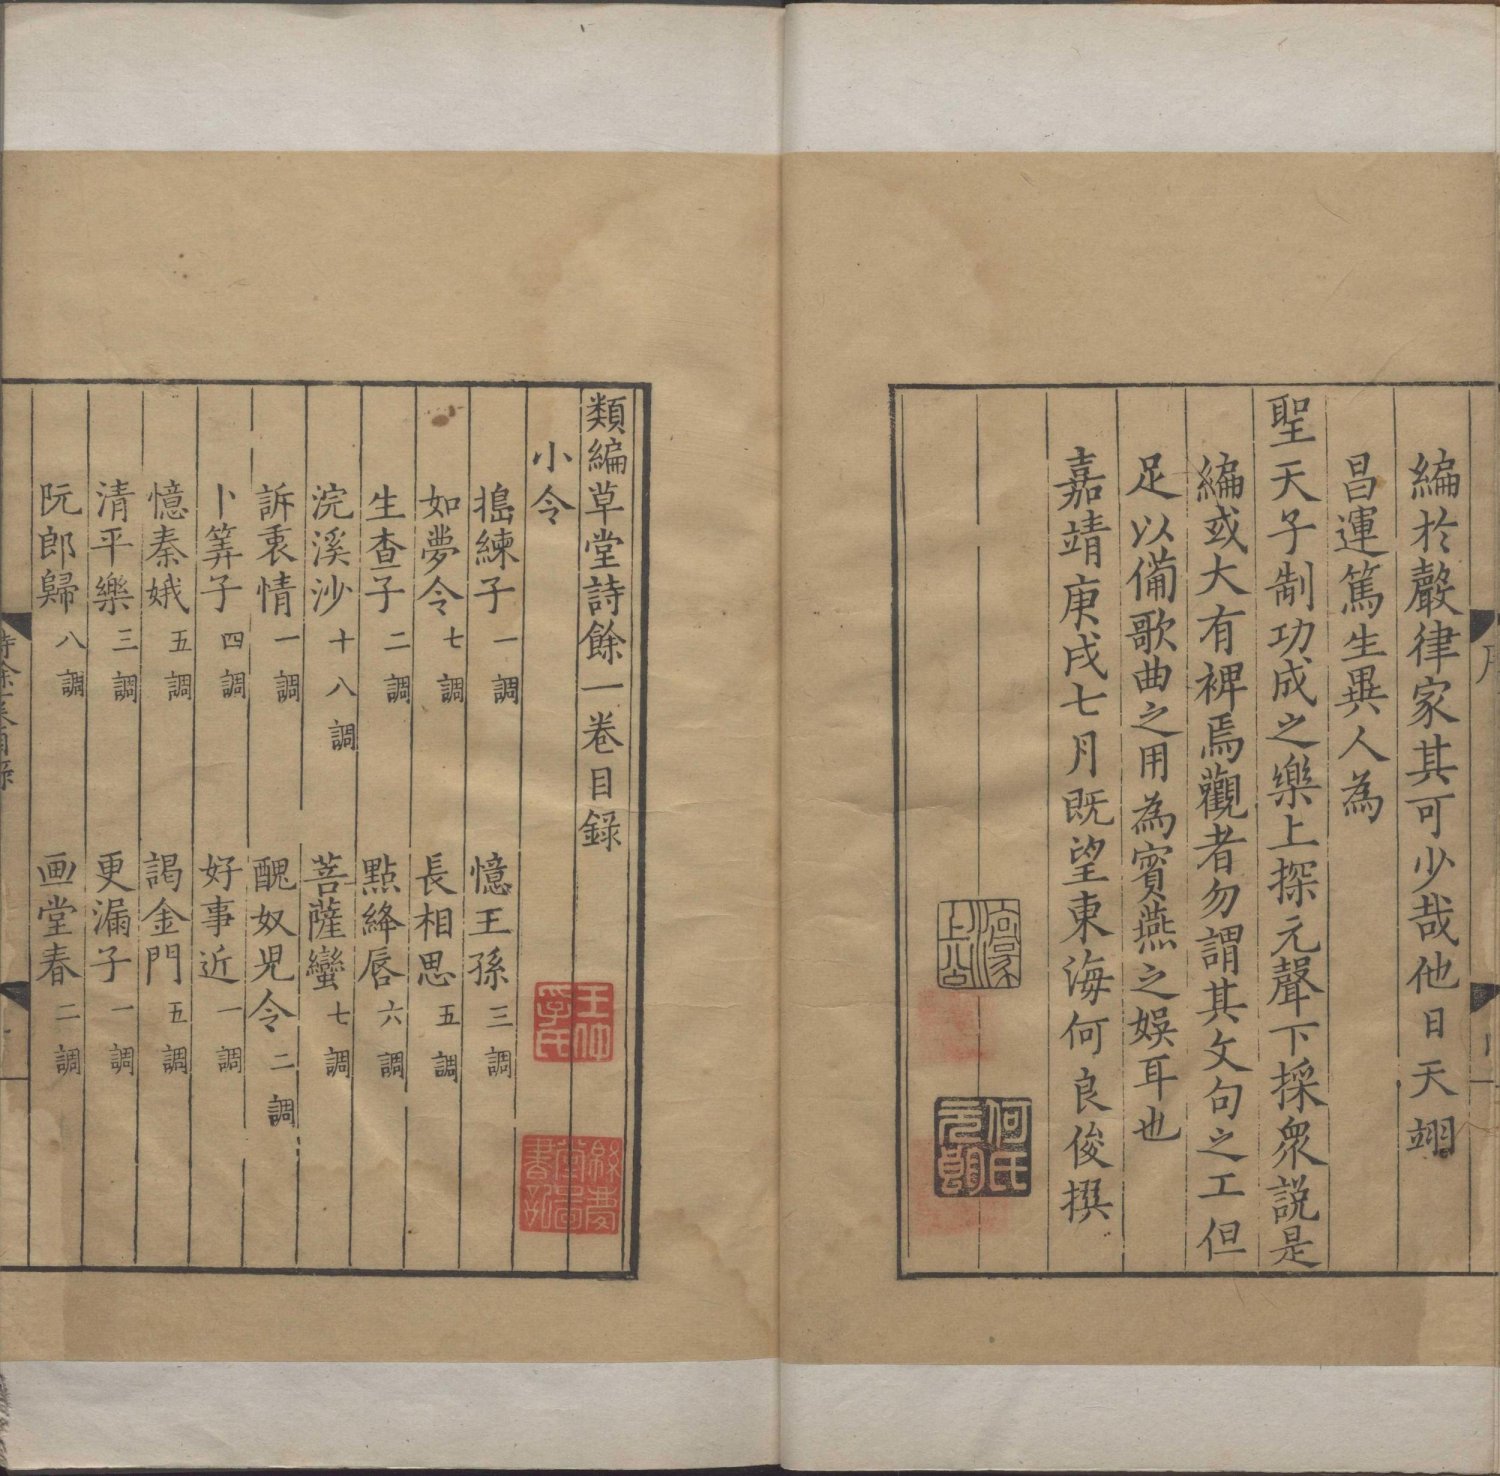 編於聲律家其可少哉他日天翊
昌運篤生異人為
聖天子制功成之樂上探元聲下採衆説是
編或大有裨焉觀者勿謂其文句之工但
足以備歌曲之用為賓燕之娛耳也
嘉靖庚戌七月既望東海何良俊撰
何氏元朗
類編草堂詩餘一卷目錄
小令
搗練子一調 憶王孫三調
如夢令七調 長相思五調
生查子二調 點絳唇六調
浣溪沙十八調 菩薩蠻七調
訴衷情一調 醜奴兒令二調
卜筭子四調 好事近一調
憶秦娥五調 謁金門五調
清平樂三調 更漏子一調
阮郎歸八調 画堂春二調